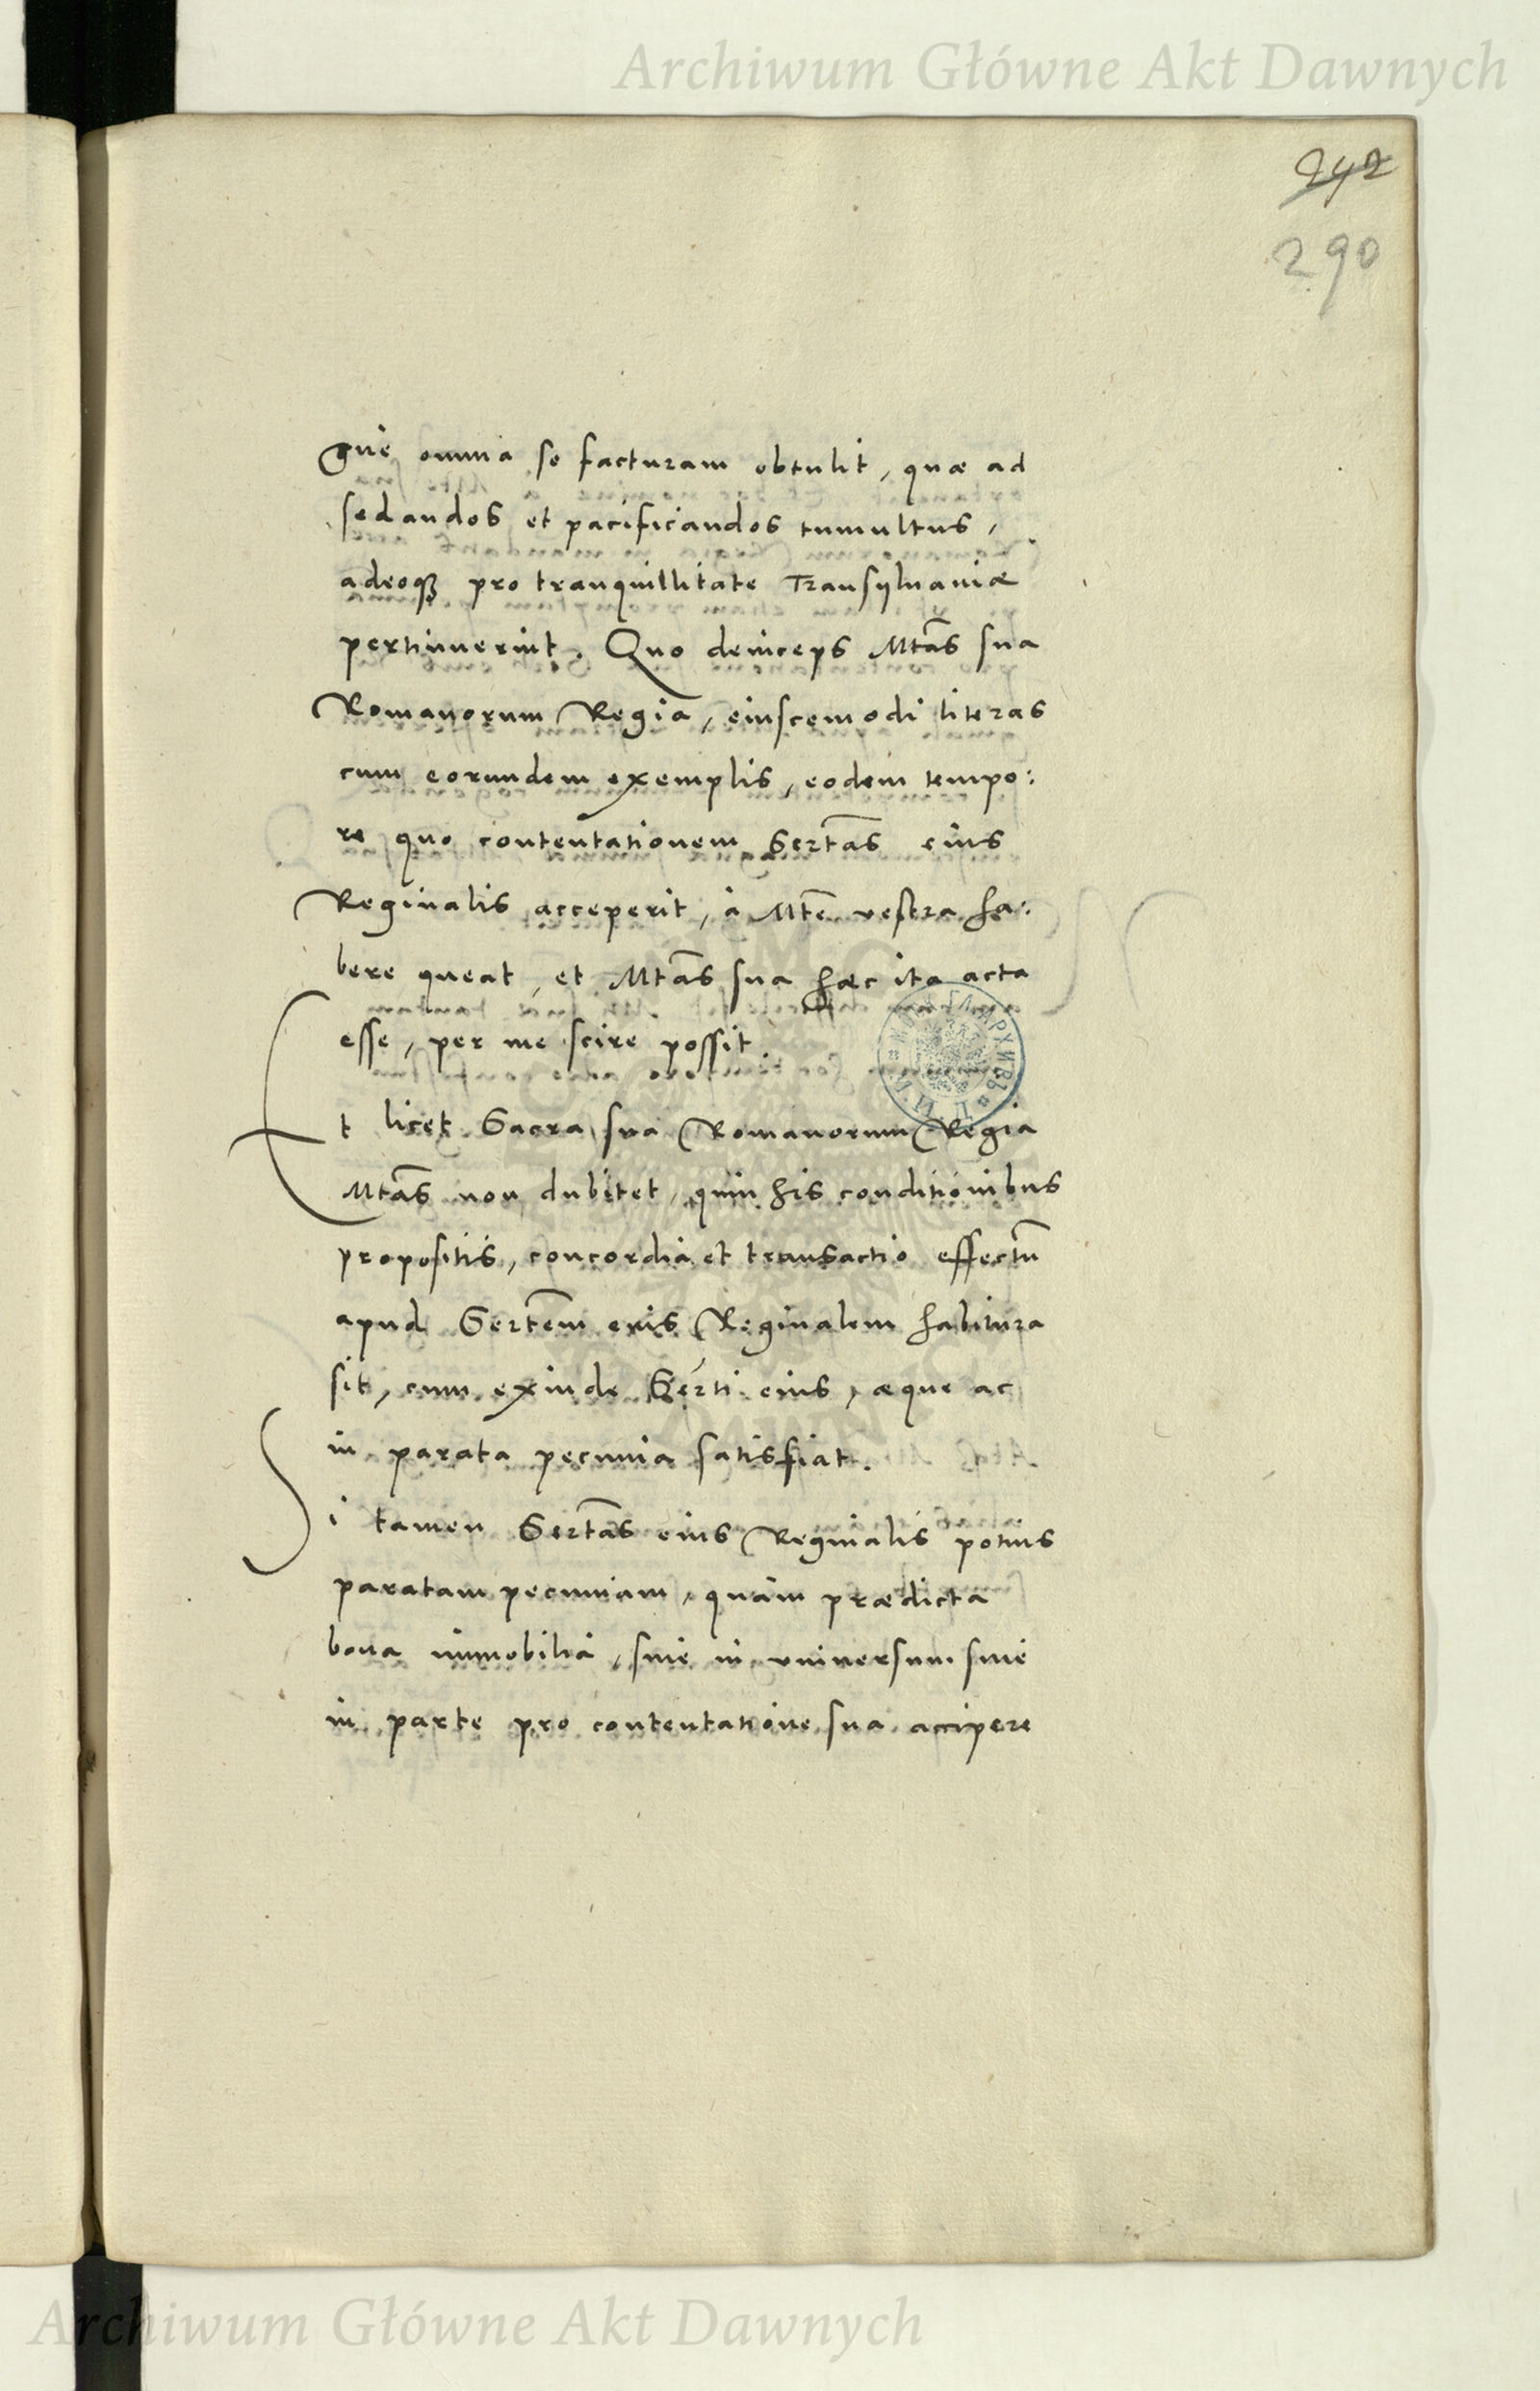 Archiwum Główne Akt Dawnych
242
290
que omnia se facturam obtulit, quæ ad
sedandos et pacificandos tumultus,
adeoqꝫ pro tranquillitate Transyluaniæ
pertinuerint. Quo deinceps Mtas̃ sua
Romanorum Regia, eiuscemodi literas
cum eorundem exemplis, eodem tempo:
re quo contentationem Sertas̃ eius
Reginalis acceperit, à Mtẽ vestra ha:
bere queat, et Mtas̃ sua hæc ita acta
esse, per me scire possit.
Et licet Sacra sua Romanorum Regia
Mtas̃ non dubitet, quin his conditionibus
propositis, concordia et transactio effectũ
apud Sertẽm eius Reginalem habitura
sit, cum exinde Serti eius, æque ac
in parata pecunia satisfiat.
Si tamen Sertas̃ eius Reginalis potius
paratam pecuniam, quàm prædicta
bona immobilia, siue in vniuersum siue
in parte pro contentatione sua accipere
Archiwum Główne Akt Dawnych